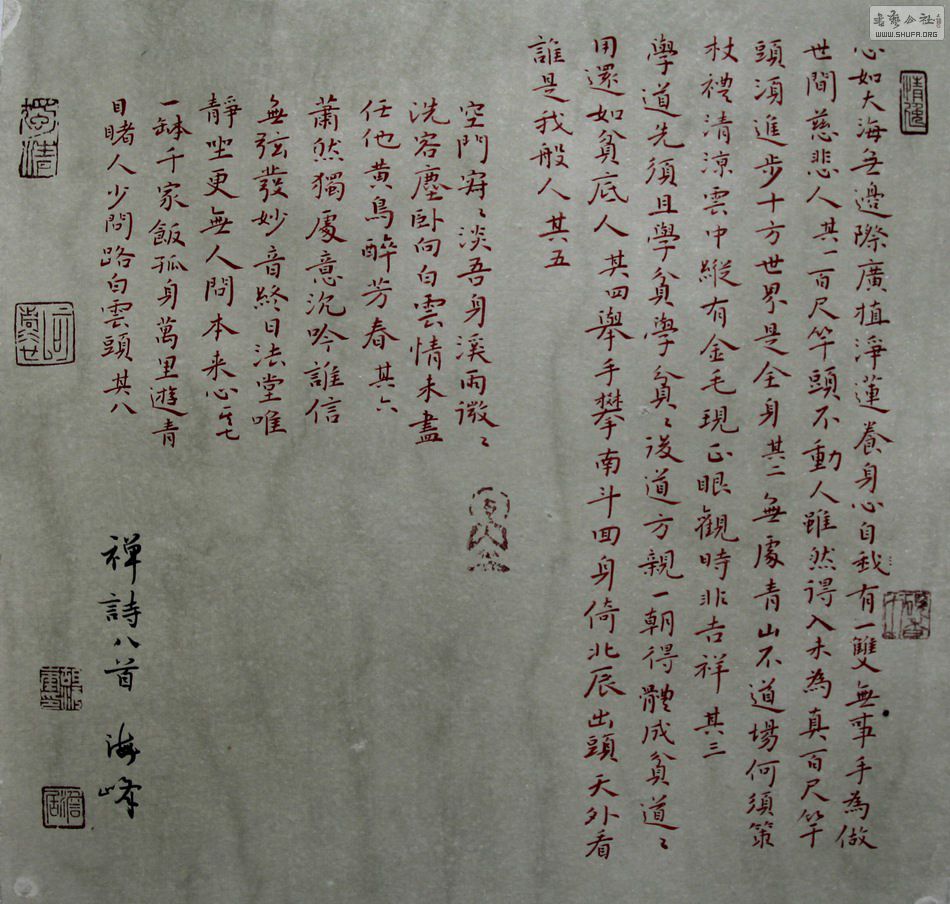 心如大海無邊際廣植淨蓮養身心自我有一雙無事手為做
世間慈悲人其一百尺竿頭不動人雖然得入未為真百尺竿
頭須進步十方世界是全身其二無處青山不道場何須策
杖禮清涼雲中縱有金毛現正眼觀時非吉祥其三
學道先須且學貧學貧〻後道方親一朝得體成貧道〻
用還如貧底人其四舉手攀南斗回身倚北辰出頭天外看
誰是我般人其五
空門寂〻淡吾身溪雨微〻
洗客塵卧向白雲情未盡
任他黄鳥醉芳春其六
蕭然獨處意沉吟誰信
無弦發妙音終日法堂唯
靜坐更無人問本来心其七
一缽千家飯孤身萬里遊青
目睹人少問路白雲頭其八
禪詩八首 海峰
书艺公社
WWW.SHUFA.ORG